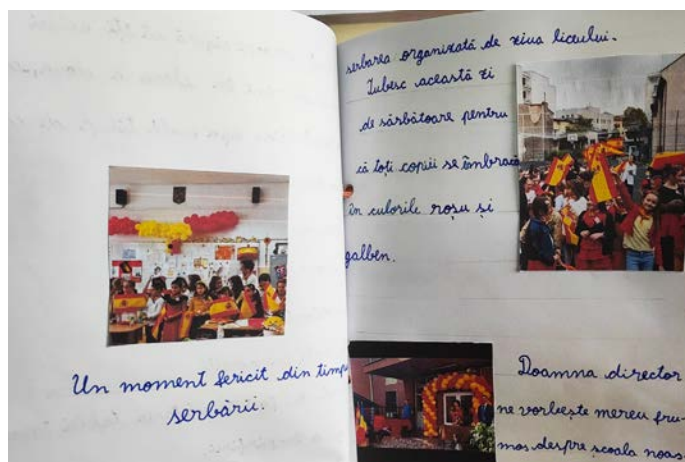 Un moment fericit din timpul
serbării.
serbarea organizată de ziua liceului.
Iubesc această zi
de sărbătoare pentru
că toți copiii se îmbracă
în culorile roșu și
galben.
Doamna director
ne vorbește mereu fru-
mos despre școala noas-